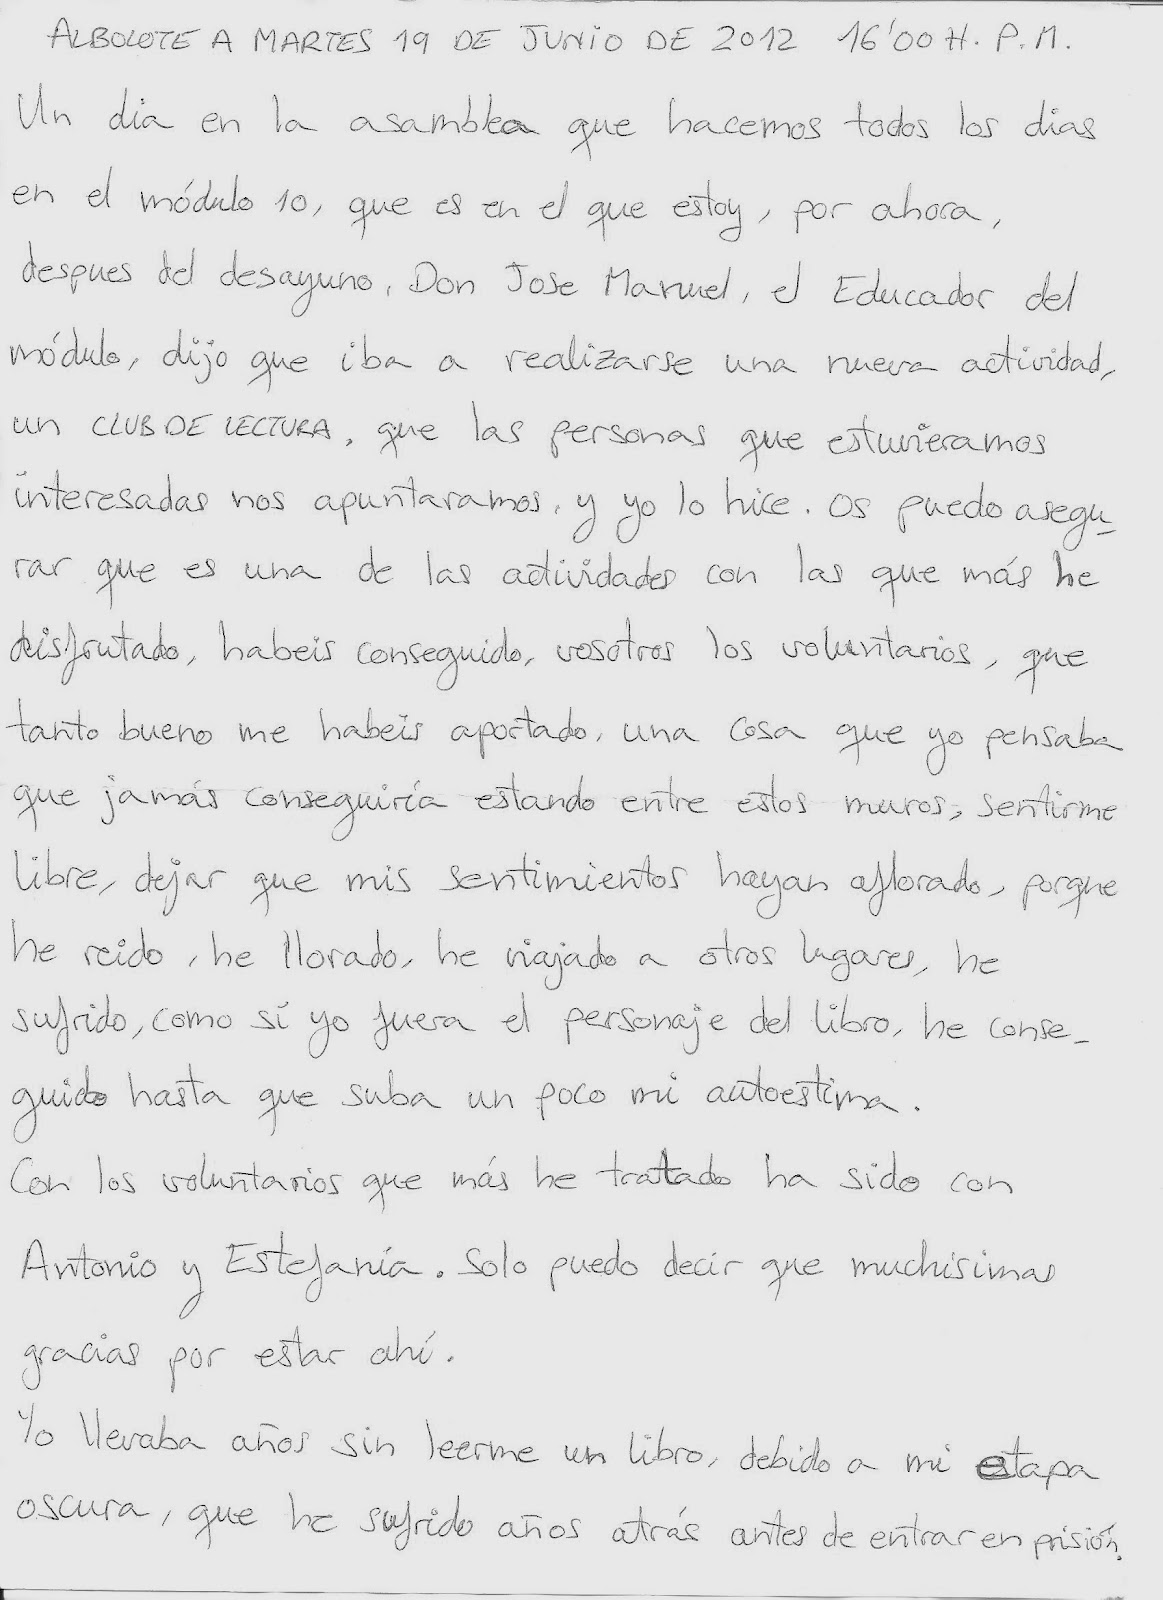 ALBOLOTE A MARTES 19 DE JUNIO DE 2012 16'00 H. P.M.
Un dia en la asamblea que hacemos todos los dias
en el módulo 10, que es en el que estoy, por ahora,
despues del desayuno, Don Jose Manuel, el Educador del
módulo, dijo que iba a realizarse una nueva actividad,
un CLUB DE LECTURA, que las personas que estuvieramos
interesadas nos apuntaramos, y yo lo hice. Os puedo asegu_
rar que es una de las actividades con las que más he
disfrutado, habeis conseguido, vosotros los voluntarios, que
tanto bueno me habeis aportado, una cosa que yo pensaba
que jamás conseguiría estando entre estos muros, sentirme
libre, dejar que mis sentimientos hayan aflorado, porque
he reido, he llorado, he viajado a otros lugares, he
sufrido, como sí yo fuera el personaje del libro, he conse_
guido hasta que suba un poco mi autoestima.
Con los voluntarios que más he tratado ha sido con
Antonio y Estefanía. Solo puedo decir que muchisimas
gracias por estar ahí.
Yo llevaba años sin leerme un libro, debido a mi etapa
oscura, que he sufrido años atrás antes de entrar en prisión.